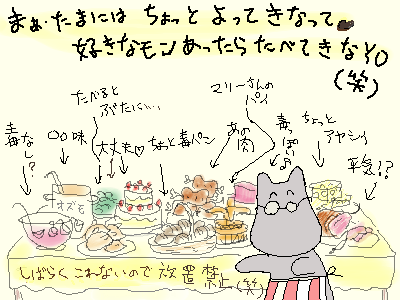 まぁ・たまには ちょっと よって きなって
好きなモン あったら たべて きなYO
(笑)
たべると
ぶたに…
マリーさんの
パイ
毒なし?
〇〇味
大丈夫♡
ちょっと毒パン
あの
肉
毒っぽい♪
ちょっと
アヤシイ
平気!?
しばらく これないので 放置禁止(笑)